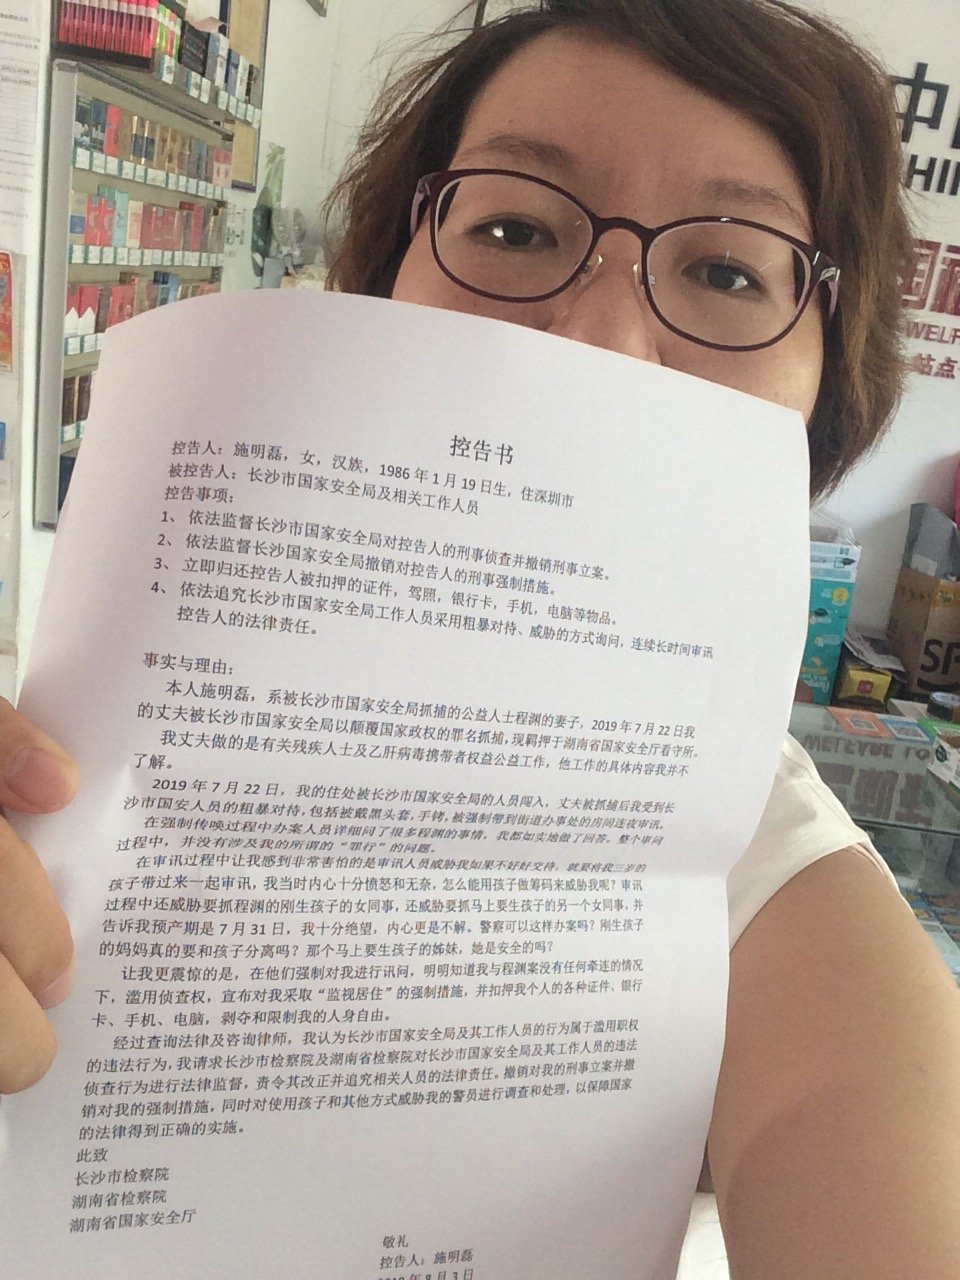 控告书
控告人：施明磊，女，汉族，1986 年 1 月 19 日生，住深圳市
被控告人：长沙市国家安全局及相关工作人员
控告事项：
1、 依法监督长沙市国家安全局对控告人的刑事侦查并撤销刑事立案。
2、 依法监督长沙国家安全局撤销对控告人的刑事强制措施。
3、 立即归还控告人被扣押的证件，驾照，银行卡，手机，电脑等物品。
4、 依法追究长沙市国家安全局工作人员采用粗暴对待、威胁的方式询问，连续长时间审讯
控告人的法律责任。
事实与理由：
本人施明磊，系被长沙市国家安全局抓捕的公益人士程渊的妻子，2019 年 7 月 22 日我
的丈夫被长沙市国家安全局以颠覆国家政权的罪名抓捕，现羁押于湖南省国家安全厅看守所。
我丈夫做的是有关残疾人士及乙肝病毒携带者权益公益工作，他工作的具体内容我并不
了解。
2019 年 7 月 22 日，我的住处被长沙市国家安全局的人员闯入，丈夫被抓捕后我受到长
沙市国安人员的粗暴对待，包括被戴黑头套，手铐，被强制带到街道办事处的房间连夜审讯。
在强制传唤过程中办案人员详细问了很多程渊的事情，我都如实地做了回答。整个审问
过程中，并没有涉及我的所谓的“罪行”的问题。
在审讯过程中让我感到非常害怕的是审讯人员威胁我如果不好好交待，就要将我三岁的
孩子带过来一起审讯，我当时内心十分愤怒和无奈。怎么能用孩子做筹码来威胁我呢？审讯
过程中还威胁要抓程渊的刚生孩子的女同事，还威胁要抓马上要生孩子的另一个女同事，并
告诉我预产期是 7 月 31 日，我十分绝望，内心更是不解。警察可以这样办案吗？刚生孩子
的妈妈真的要和孩子分离吗？那个马上要生孩子的姊妹，她是安全的吗？
让我更震惊的是，在他们强制对我进行讯问，明明知道我与程渊案没有任何牵连的情况
下，滥用侦查权，宣布对我采取“监视居住”的强制措施，并扣押我个人的各种证件、银行
卡、手机、电脑，剥夺和限制我的人身自由。
经过查询法律及咨询律师，我认为长沙市国家安全局及其工作人员的行为属于滥用职权
的违法行为，我请求长沙市检察院及湖南省检察院对长沙市国家安全局及其工作人员的违法
侦查行为进行法律监督，责令其改正并追究相关人员的法律责任。撤销对我的刑事立案并撤
销对我的强制措施，同时对使用孩子和其他方式威胁我的警员进行调查和处理，以保障国家
的法律得到正确的实施。
此致
长沙市检察院
湖南省检察院
湖南省国家安全厅
敬礼
控告人：施明磊
2019 年 8 月 3 日
中
HIN
WELF
站点
SF